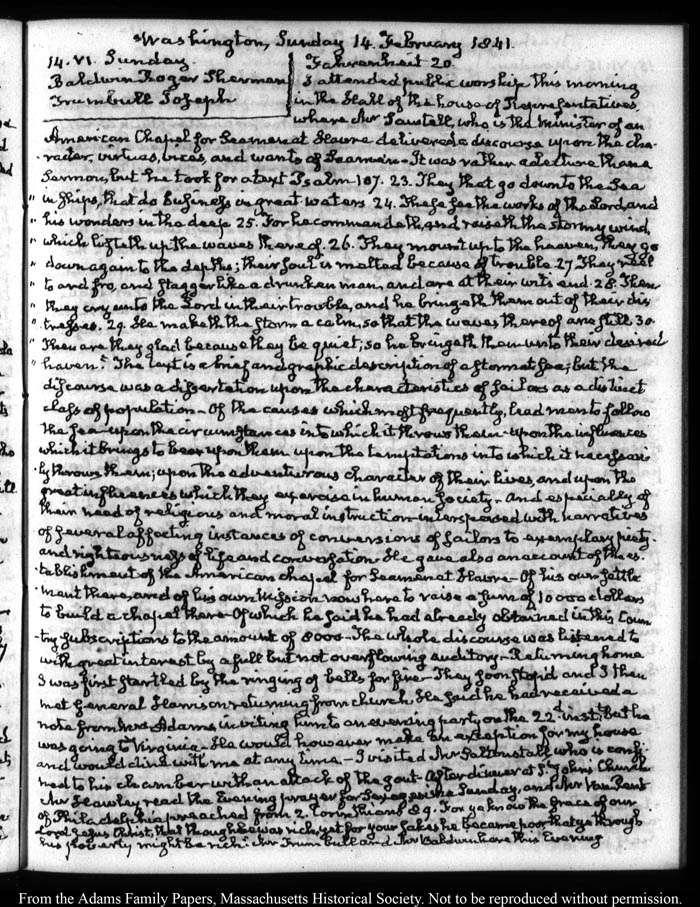 Washington, Sunday 14. February 1841.
14. VI. Sunday.
Baldwin Roger Sherman
Trumbull Joseph
Fahrenheit 20.
I attended public worship this morning
in the Hall of the house of Representatives,
where Mr Sawtell, who is the Minister of an
American Chapel for Seamen at Havre delivered a discourse upon the cha-
racter, virtues, vices, and wants of Seamen - It was rather a lecture than a
Sermon, but he took for a text Psalm 107. 23. They that go down to the Sea
" in Ships, that do business in great waters 24. These see the works of the Lord, and
" his wonders in the deep 25. For he commandeth, and raiseth the stormy wind,
" which lifteth up the waves thereof. 26. They mount up to the heaven, they go
" down again to the depths; their soul is melted because of trouble. 27 They reel
" to and fro, and stagger like a drunken man, and are at their wits end. 28. Then
" they cry unto the Lord in their trouble, and he bringeth them out of their dis
" tresses. 29. He maketh the storm a calm, so that the waves thereof are still. 30.
" Then are they glad because they be quiet; so he bringeth them unto their desired
" haven." The text is a brief and graphic description of a storm at sea; but the
discourse was a dissertation upon the characteristics of sailors as a distinct
class of population - Of the causes which most frequently, lead men to follow
the sea - upon the circumstances into which it throws them - upon the influences
which it brings to bear upon them upon the temptations into which it necessari
ly throws them; upon the adventurous character of their lives, and upon the
great influences which they exercise in human Society - And especially of
their need of religious and moral instruction - interspersed with narratives
of several affecting instances of conversions of sailors to exemplary piety.
and righteousness of life and conversation. He gave also an account of the es-
tablishment of the American chapel for Seamen at Havre - Of his own settle
ment there, and of his own Mission now here to raise a sum of 10000 dollars
to build a chapel there - Of which he said he had already obtained in this Coun
try subscriptions to the amount of 8000 - The whole discourse was listened to
with great interest by a full but not overflowing auditory - Returning home
I was first startled by the ringing of bells for fire - They soon stop'd and I then
met General Harrison returning from church. He said he had received a
note from Mrs Adams, inviting him to an evening party, on the 22d inst. but he
was going to Virginia - He would however make an exception for my house
and would dine with me at any time - I visited Mr Saltonstall who is confi-
ned to his chamber with an attack of the gout - After dinner at St. John's Church
Mr Hawley read the Evening prayer for Sexagesima Sunday, and Mr Van Pelt
of Philadelphia preached from 2. Corinthians 8 9. For ye know the grace of our
Lord Jesus Christ, that though he was rich, yet for your sakes he became poor, that ye through
his poverty might be rich. Mr Trumbull and Mr Baldwin here this Evening
From the Adams Family Papers, Massachusetts Historical Society. Not to be reproduced without permission.